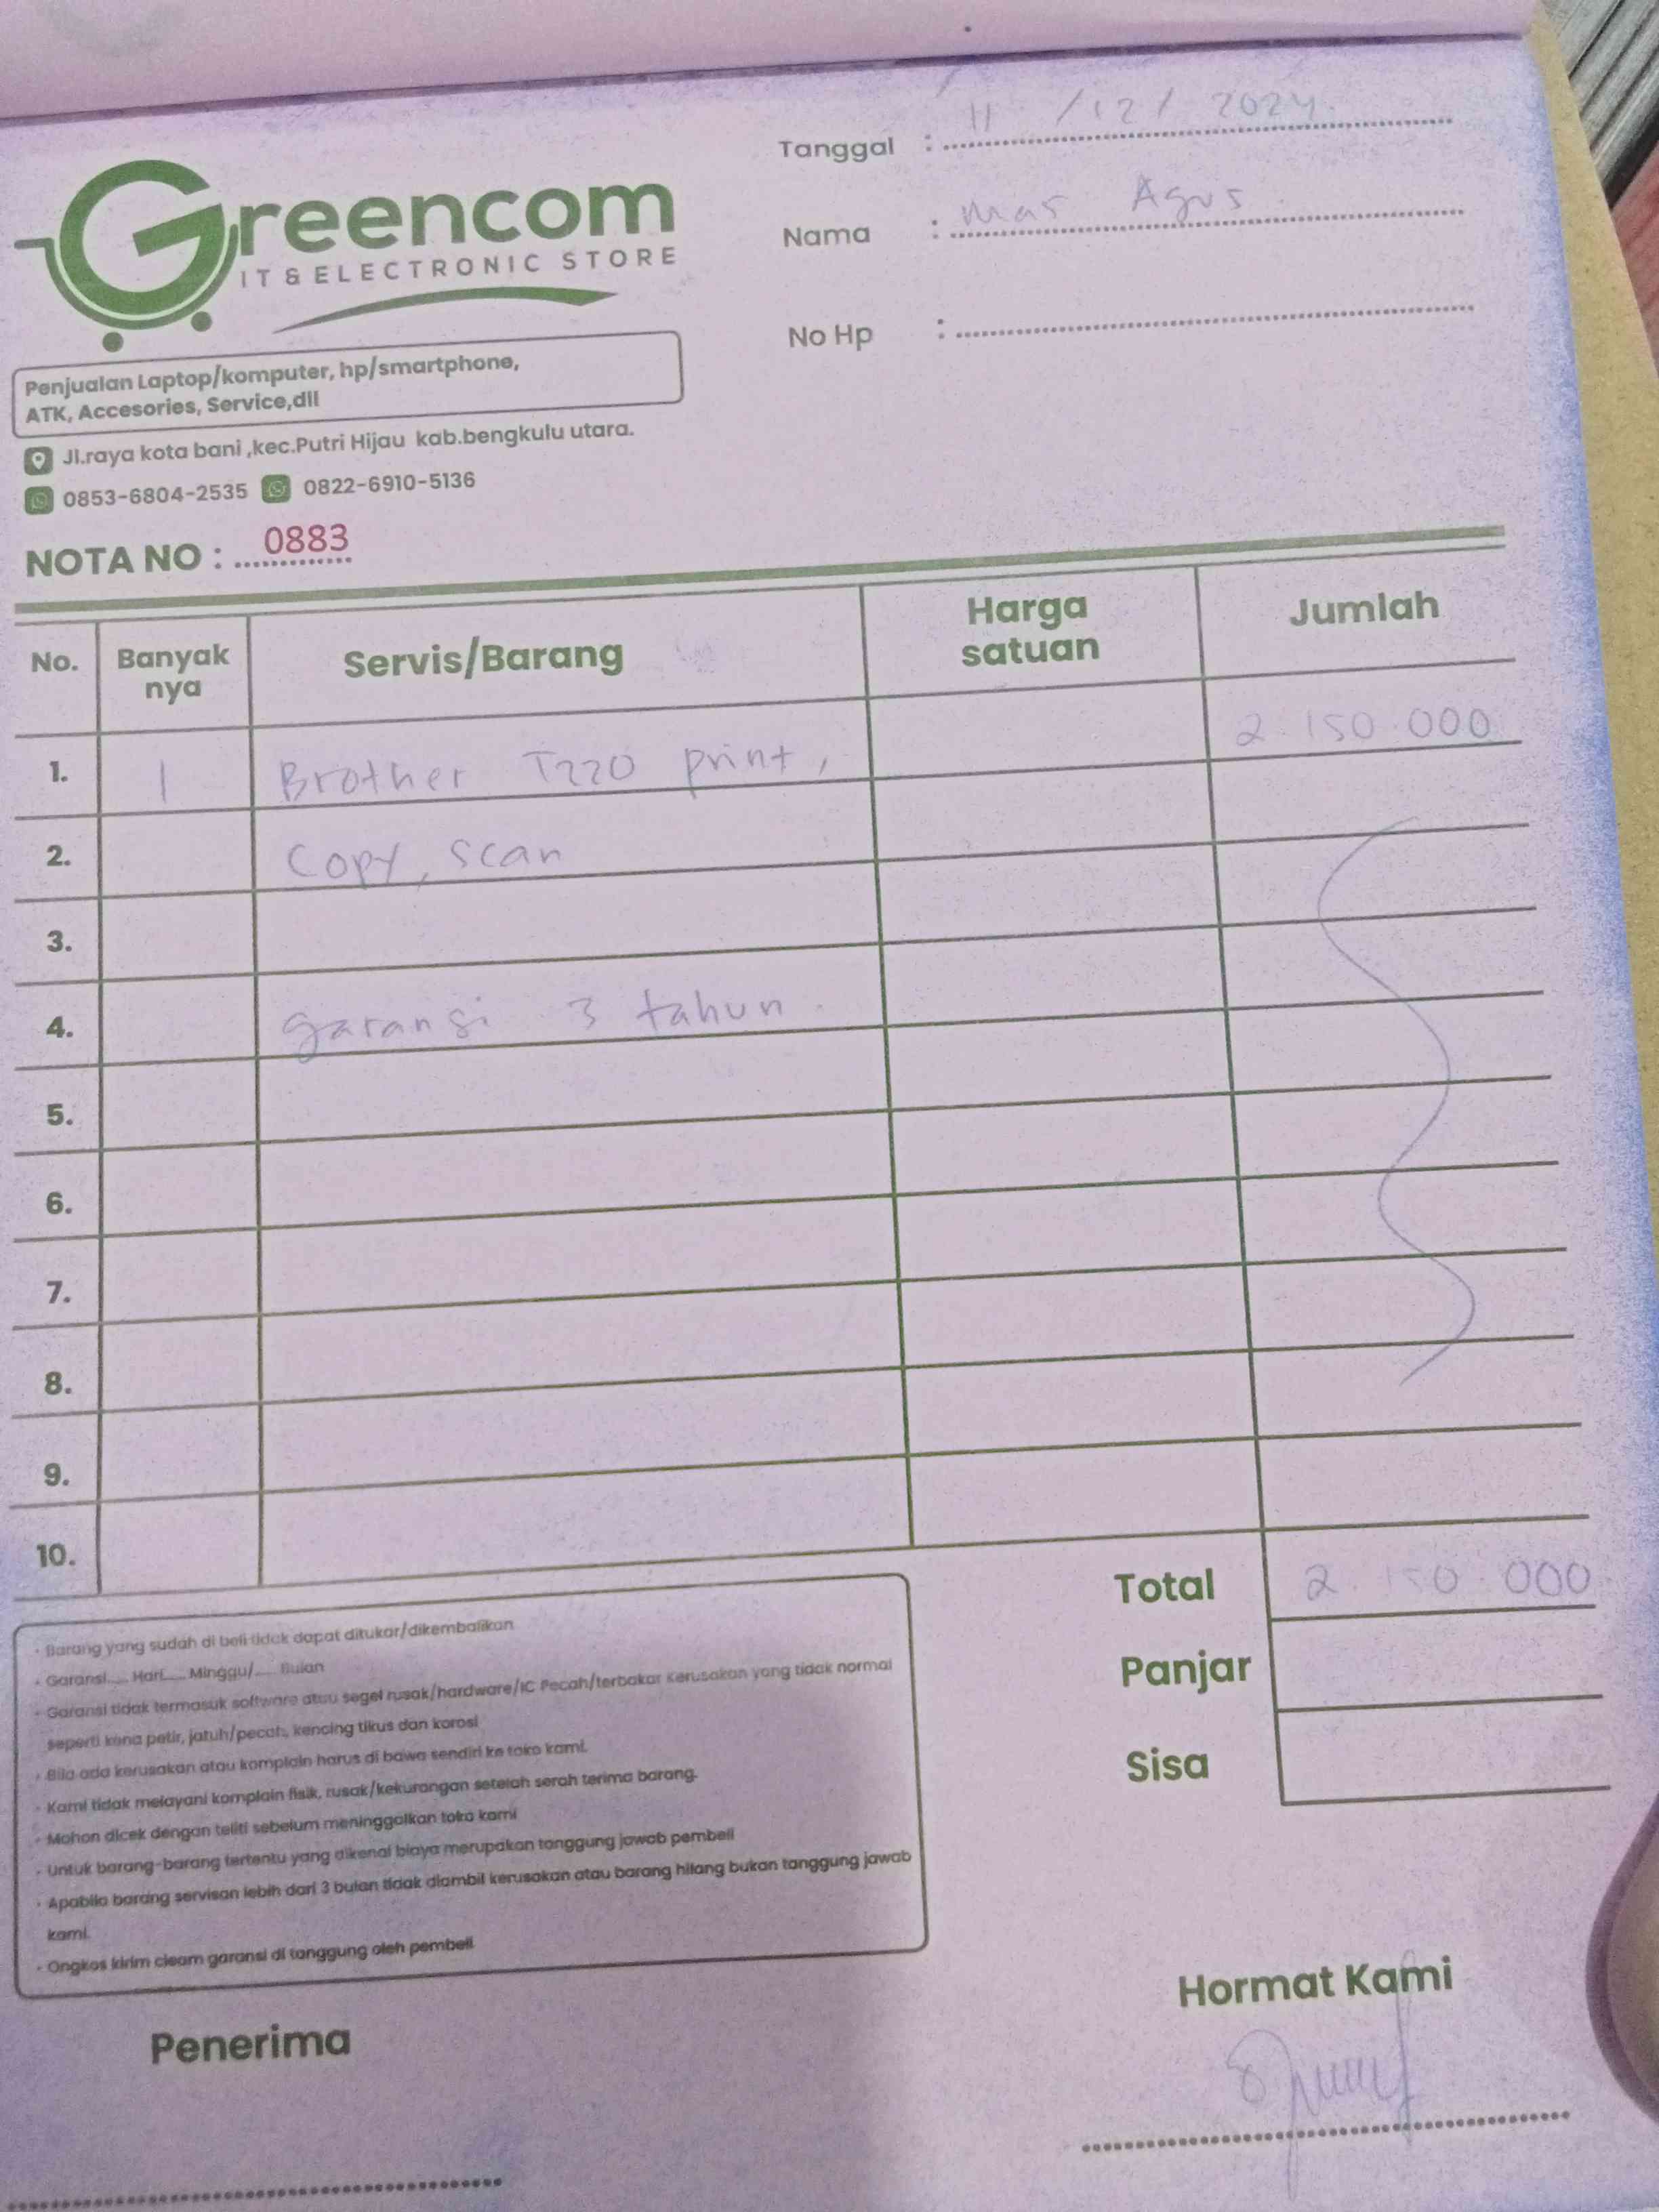 Greencom
IT & ELECTRONIC STORE
Tanggal : 11 / 12 / 2024
Nama : Mas Agus
No Hp :
Penjualan Laptop/komputer, hp/smartphone,
ATK, Accesories, Service,dll
Jl.raya kota bani ,kec.Putri Hijau kab.bengkulu utara.
0853-6804-2535 0822-6910-5136
NOTA NO : 0883
No. Banyak nya Servis/Barang Harga satuan Jumlah
1. 1 Brother T220 print, 2.150.000
2. Copy, scan
3.
4. garansi 3 tahun.
5.
6.
7.
8.
9.
10.
Total 2.150.000
Panjar
Sisa
- Barang yang sudah di beli tidak dapat ditukar/dikembalikan
- Garansi.... Hari.... Minggu/.... Bulan
- Garansi tidak termasuk software atau segel rusak/hardware/IC Pecah/terbakar Kerusakan yang tidak normal
seperti kena petir, jatuh/pecah, kencing tikus dan korosi
- Bila ada kerusakan atau komplain harus di bawa sendiri ke toko kami.
- Kami tidak melayani komplain fisik, rusak/kekurangan setelah serah terima barang.
- Mohon dicek dengan teliti sebelum meninggalkan toko kami
- Untuk barang-barang tertentu yang dikenai biaya merupakan tanggung jawab pembeli
- Apabila barang servisan lebih dari 3 bulan tidak diambil kerusakan atau barang hilang bukan tanggung jawab
kami.
- Ongkos kirim cleam garansi di tanggung oleh pembeli
Penerima
Hormat Kami